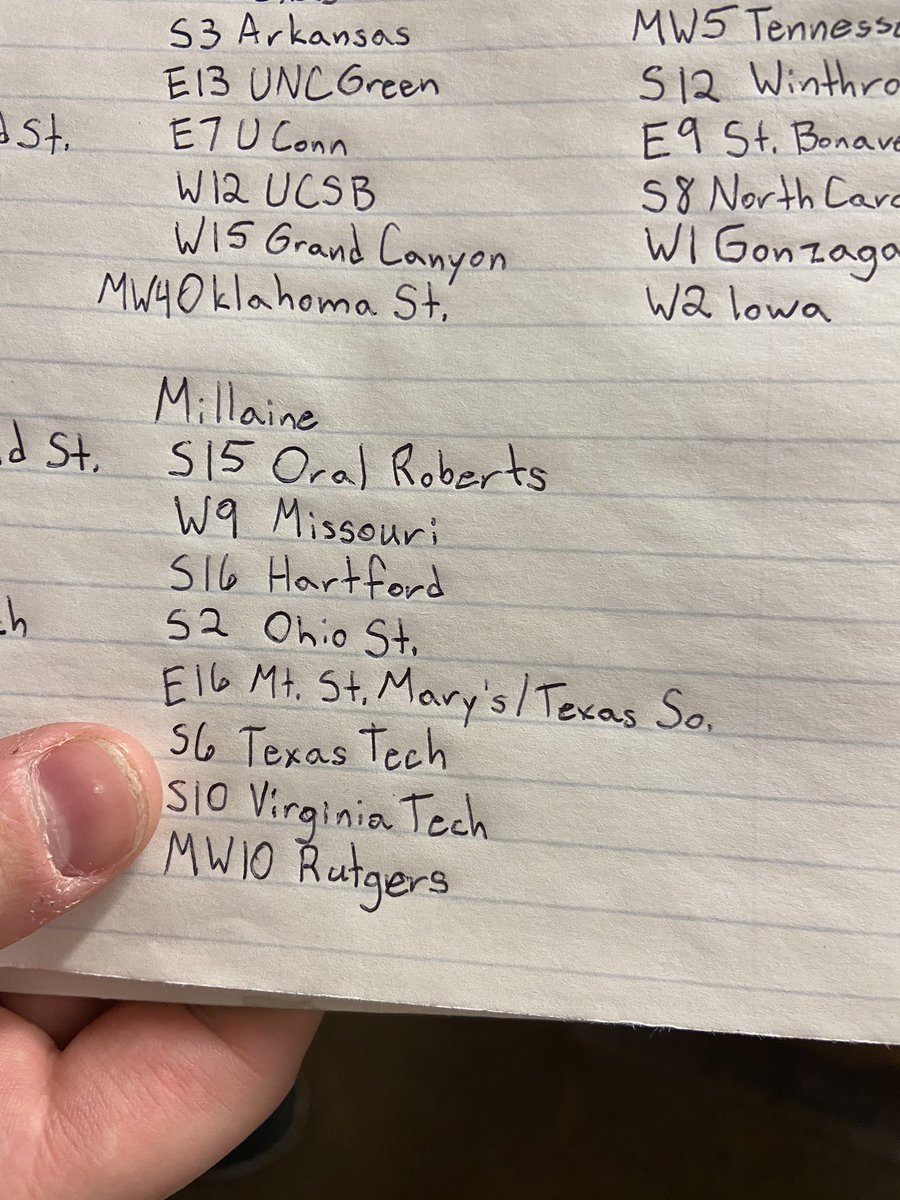 S3 Arkansas
E13 UNC Green
E7 U Conn
W12 UCSB
W15 Grand Canyon
MW4 Oklahoma St.
MW5 Tennesse
S12 Winthro
E9 St. Bonave
S8 North Caro
W1 Gonzaga
W2 Iowa
d St.
d St.
ch
Millaine
S15 Oral Roberts
W9 Missouri
S16 Hartford
S2 Ohio St.
E16 Mt. St. Mary's/Texas So.
S6 Texas Tech
S10 Virginia Tech
MW10 Rutgers